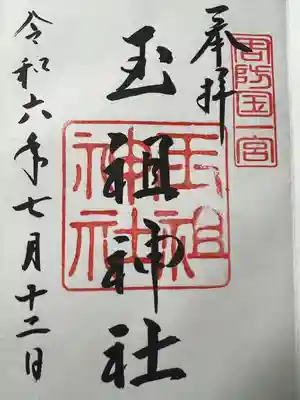 奉拝
周防国一宮
玉祖神社
玉祖神社
令和六年七月十二日